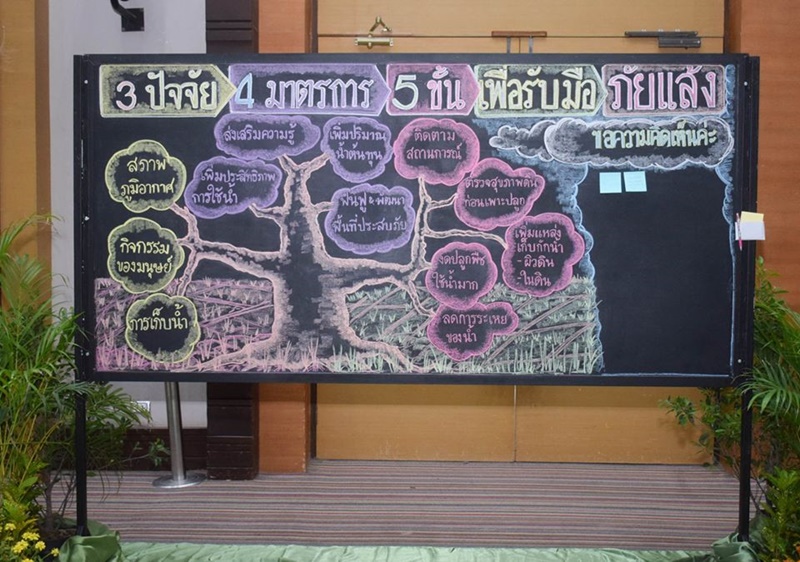 3 ปัจจัย 4 มาตรการ 5 ขั้น เพื่อรับมือ ภัยแล้ง
สภาพ
ภูมิอากาศ
กิจกรรม
ของมนุษย์
การเก็บน้ำ
ส่งเสริมความรู้
เพิ่มประสิทธิภาพ
การใช้น้ำ
เพิ่มปริมาณ
น้ำต้นทุน
ฟื้นฟู & พัฒนา
พื้นที่ประสบภัย
ติดตาม
สถานการณ์
ตรวจสุขภาพดิน
ก่อนเพาะปลูก
เพิ่มแหล่ง
เก็บกักน้ำ
- ผิวดิน
- ในดิน
งดปลูกพืช
ใช้น้ำมาก
ลดการระเหย
ของน้ำ
ขอความคิดเห็นค่ะ